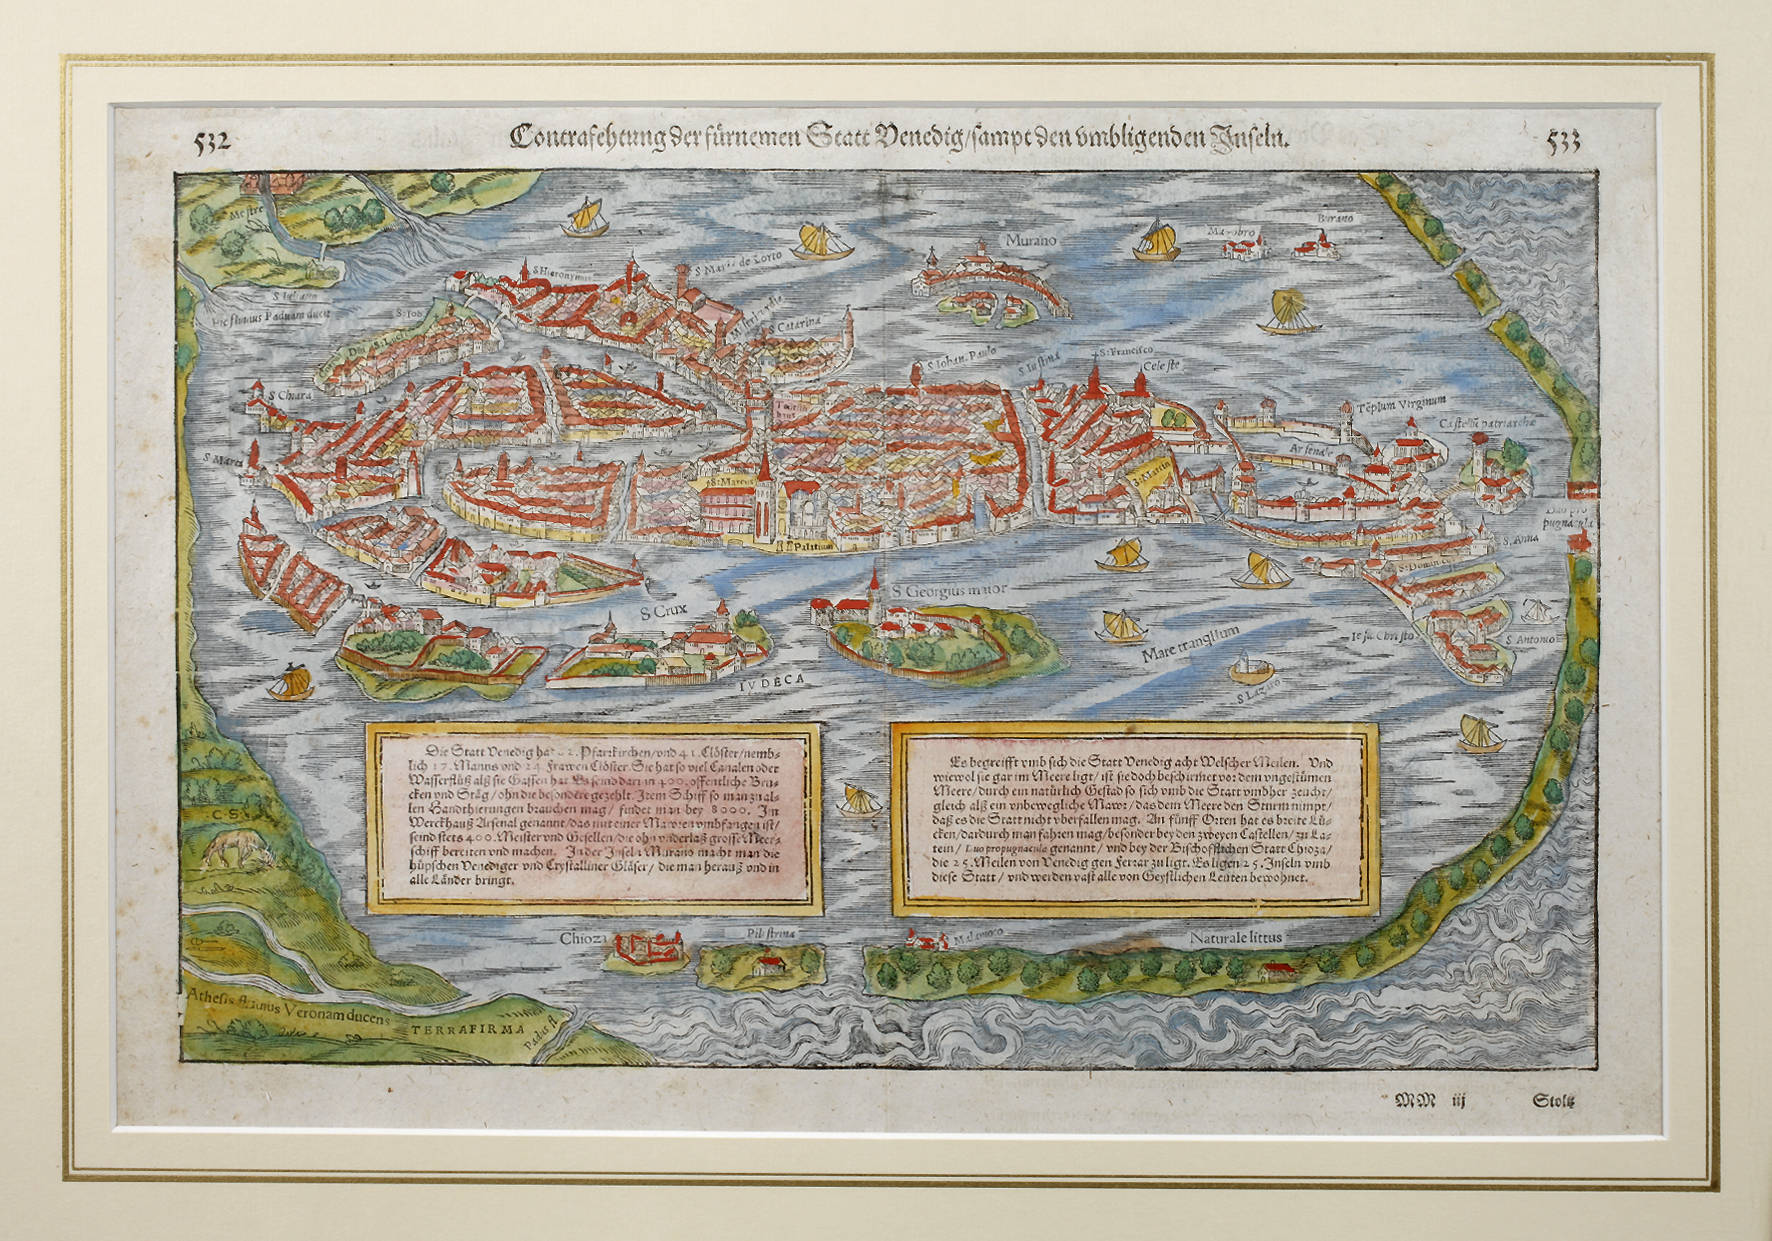 532
Contrafehtung der fürnemen Statt Venedig/sampt den vmbligenden Inseln.
533
Mestre
Burano
Murano
S Hieronymus
S Maria de Lorto
S Iuliano
Hic fluuius Paduam ducit
S. Iob
S Catarina
S Iohan. Paulo
S Iustina
S: Francisco
Celeste
S Chiara
S Marta
Tēplum Virginum
Castellū patriarchæ
Arsenale
S: Marcus
S: Martin
Palatium
Duo pro
pugnacula
S. Anna
S: Dominico
S Crux
S Georgius maior
Mare tranqlium
Iesu Christo
S Antonio
S Lazaro
IVDECA
Die Statt Venedig hat 62. Pfarrkirchen/vnd 41. Clöster/nemb-
lich 17. Manns vnd 24 Frawen Clöster. Sie hat so viel Canalen oder
Wasserflüß alß sie Gassen hat. Es seind darin 400. offentliche Bru-
cken vnd Stäg/ohn die besondere gezehlt. Item Schiff so man zu al-
len Handthierungen brauchen mag/ findet man bey 8000. Im
Werckhauß Arsenal genannt/das mit einer Mawren vmbfangen ist/
seind stets 400. Meister vnd Gesellen/die ohn vnderlaß grosse Meer-
schiff bereiten vnd machen. In der Inseln Murano macht man die
hüpschen Venediger vnd Crystalliner Gläser/die man herauß vnd in
alle Länder bringt.
Es begreifft vmb sich die Statt Venedig acht Welscher Meilen. Vnd
wiewol sie gar im Meere ligt/ist sie doch beschirmet vor dem vngestümen
Meere/durch ein natürlich Gestad so sich vmb die Statt vmbher zeucht/
gleich alß ein vnbewegliche Mawr/das dem Meere den Sturm nimpt/
daß es die Statt nicht vberfallen mag. An fünff Orten hat es breite Lü-
cken/dardurch man fahren mag/besonder bey den zweyen Castellen/zu La-
tein/Duo propugnacula genannt/vnd bey der Bischofflichen Statt Chioza/
die 25. Meilen von Venedig gen Ferrar zu ligt. Es ligen 25. Inseln vmb
diese Statt/vnd werden vast alle von Geystlichen Leuten bewohnet.
C.S.
Chioza
Pilistrina
Malamoco
Naturale littus
Athesis fluuius Veronam ducens
TERRA FIRMA
Padus fl.
MM iij
Stoltz